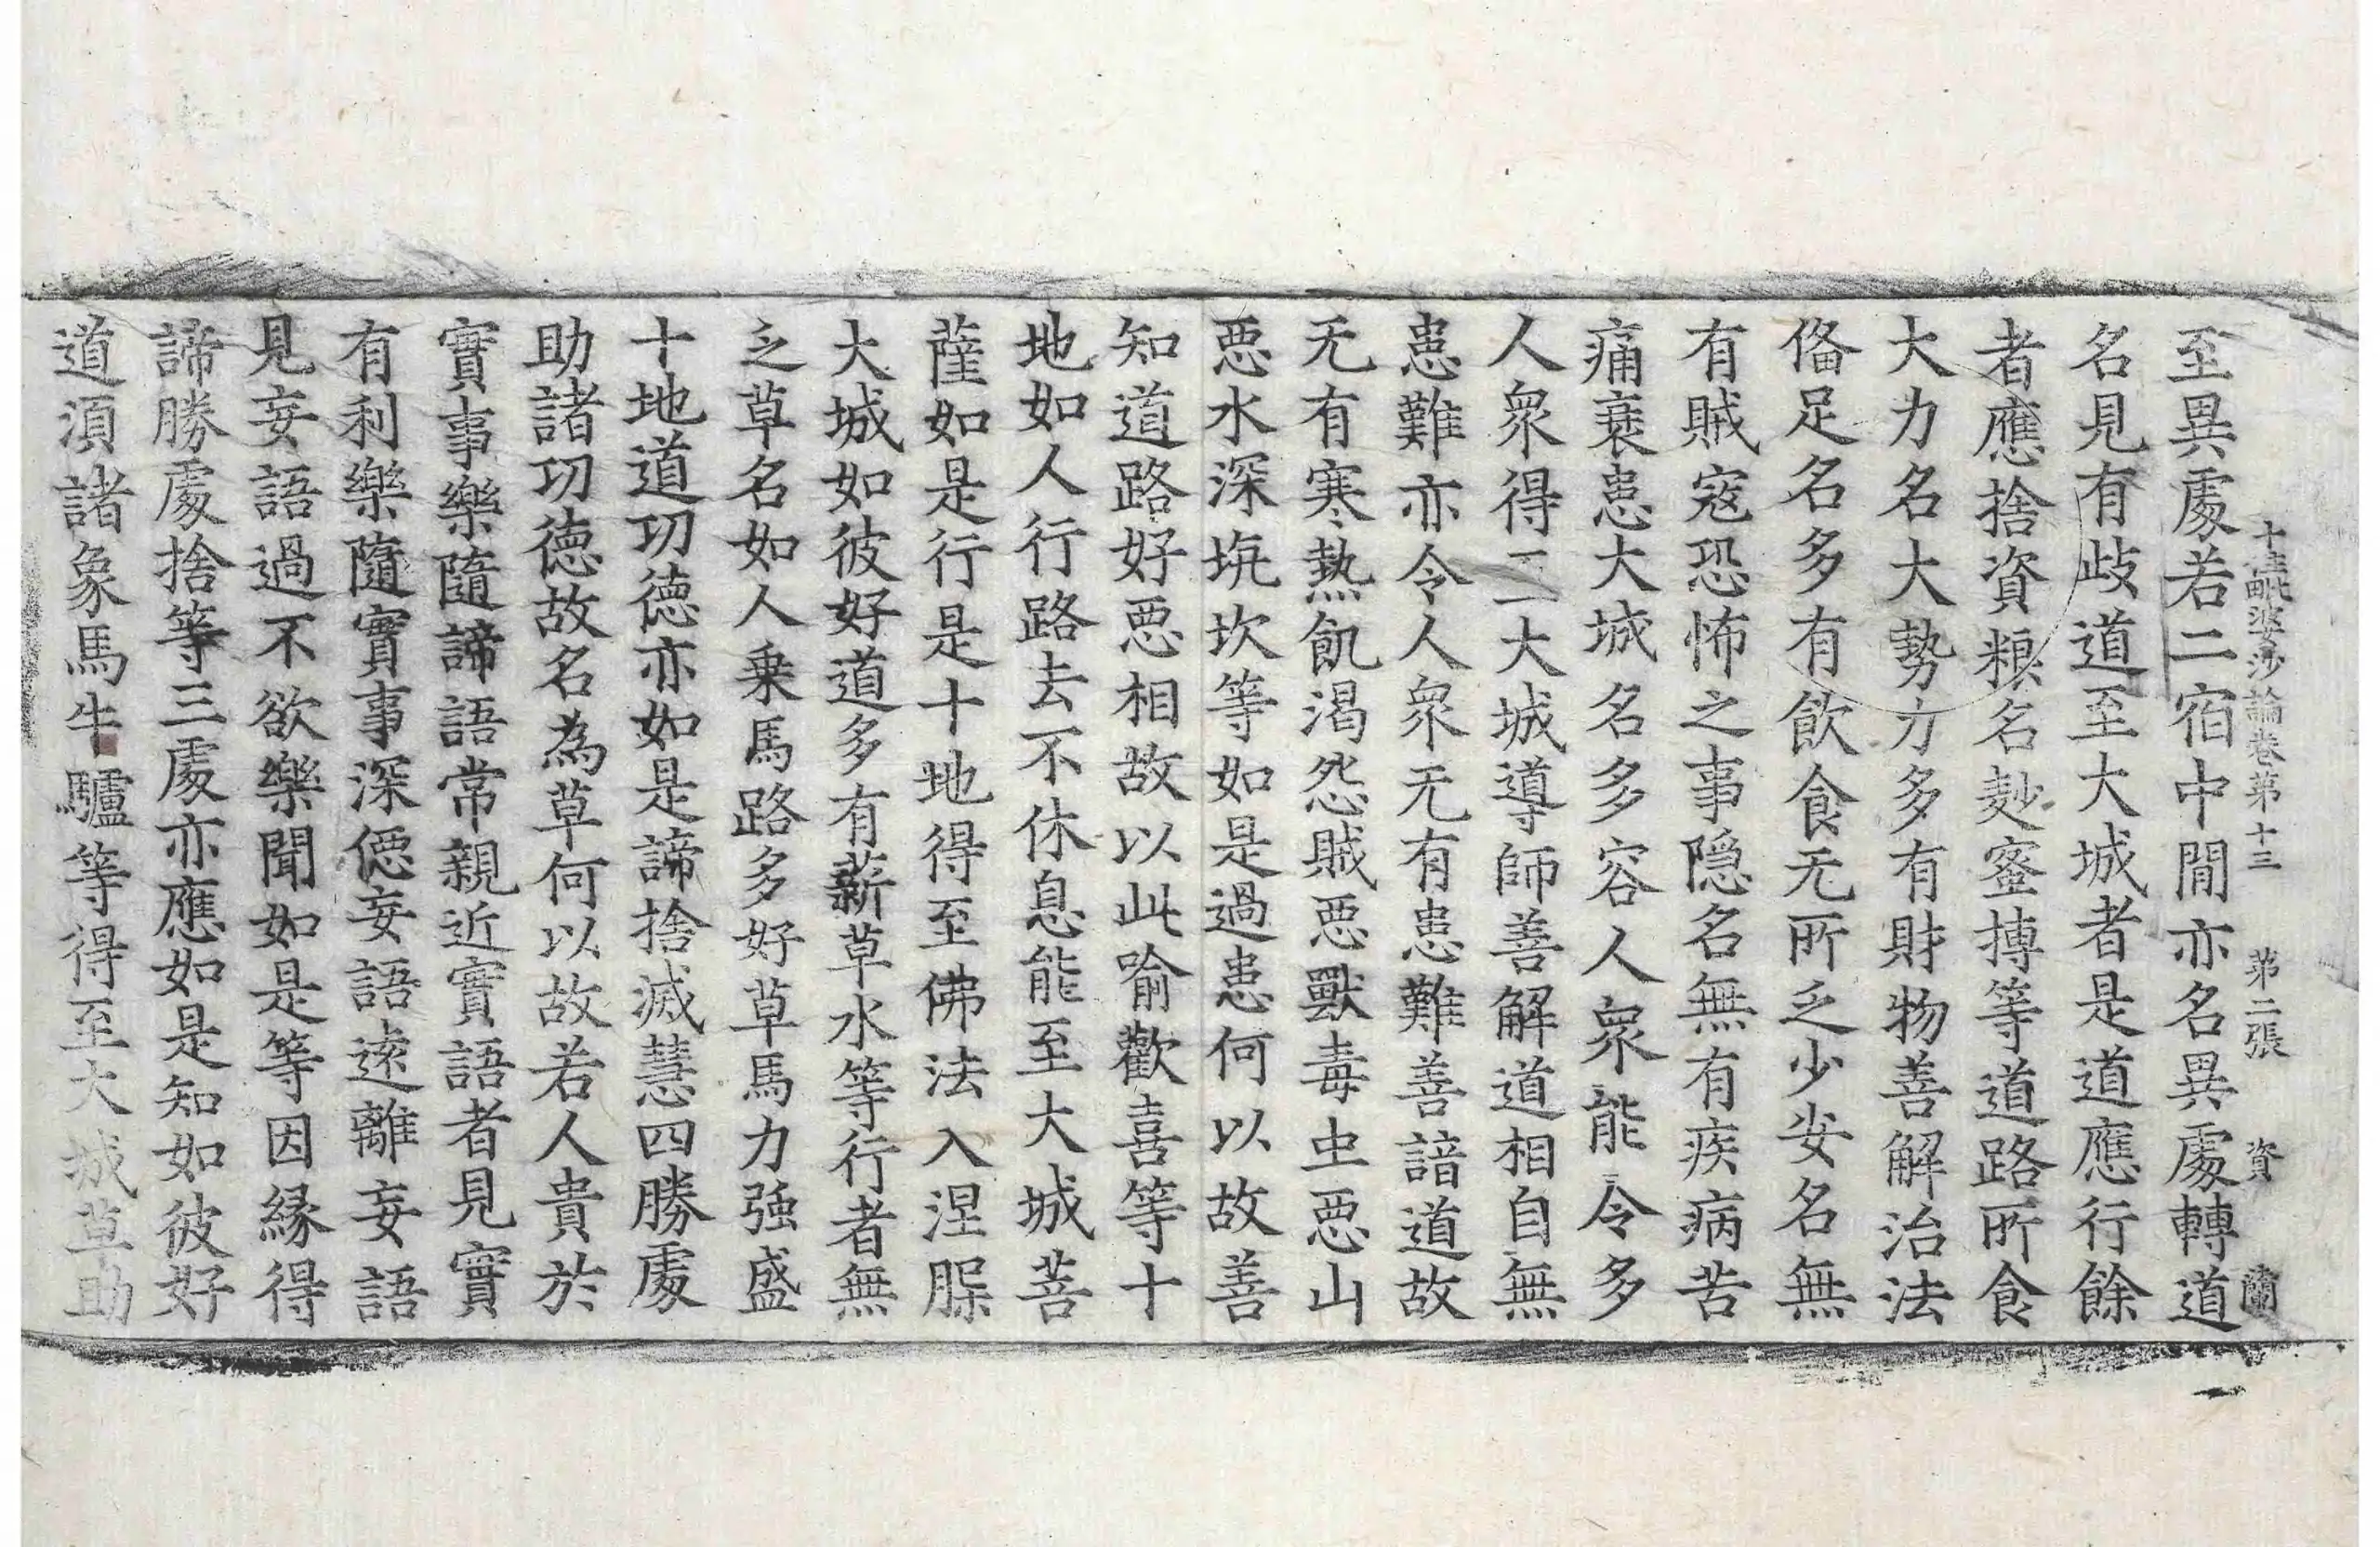 十住毗婆沙論卷第十三 第二張 資 蘭
至異處若二宿中閒亦名異處轉道
名見有歧道至大城者是道應行餘
者應捨資粮名麨蜜摶等道路所食
大力名大勢力多有財物善解治法
俻足名多有飲食无所乏少安名無
有賊寇恐怖之事隐名無有疾病苦
痛衰患大城名多容人衆能令多
人衆得一大城導師善解道相自無
患難亦令人衆无有患難善諳道故
无有寒熱飢渴怨賊惡獸毒虫惡山
惡水深坑坎等如是過患何以故善
知道路好惡相故以此喻歡喜等十
地如人行路去不休息能至大城菩
薩如是行是十地得至佛法入涅槃
大城如彼好道多有薪草水等行者無
乏草名如人乗馬路多好草馬力强盛
十地道功德亦如是諦捨滅慧四勝處
助諸功德故名為草何以故若人貴於
實事樂隨諦語常親近實語者見實
有利樂隨實事深𠍴妄語遠離妄語
見妄語過不欲樂聞如是等因緣得
諦勝處捨等三處亦應如是知如彼好
道須諸象馬牛驢等得至大城草助